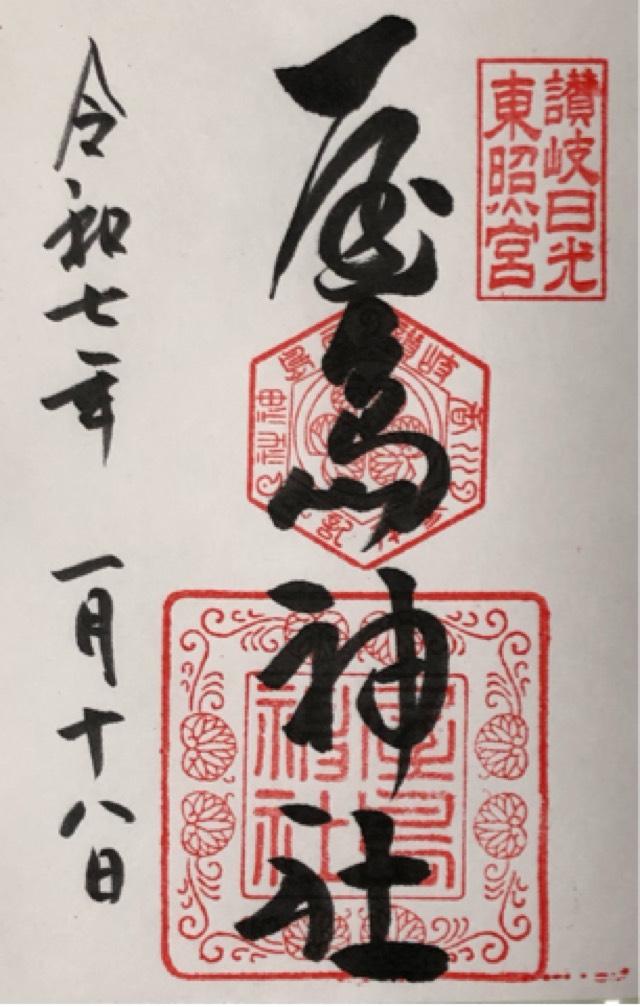 讃岐日光
東照宮
屋島神社
讃岐
香川
神社
屋島
神社
令和七年 一月十八日